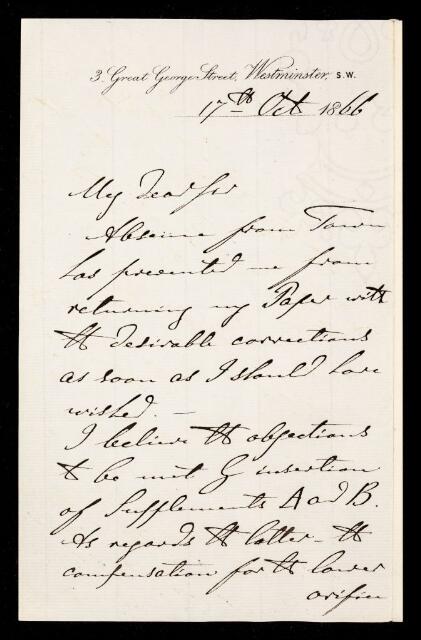 3, Great George Street, Westminster, S.W.
17th Oct 1866
My Dear Sir
Absence from Town
has prevented me from
returning my Paper with
tt desirable corrections
as soon as I should have
wished. —
I believe tt objections
to be met by insertion
of Supplements A and B.
As regards tt latter – tt
compensation for tt lower
orifice